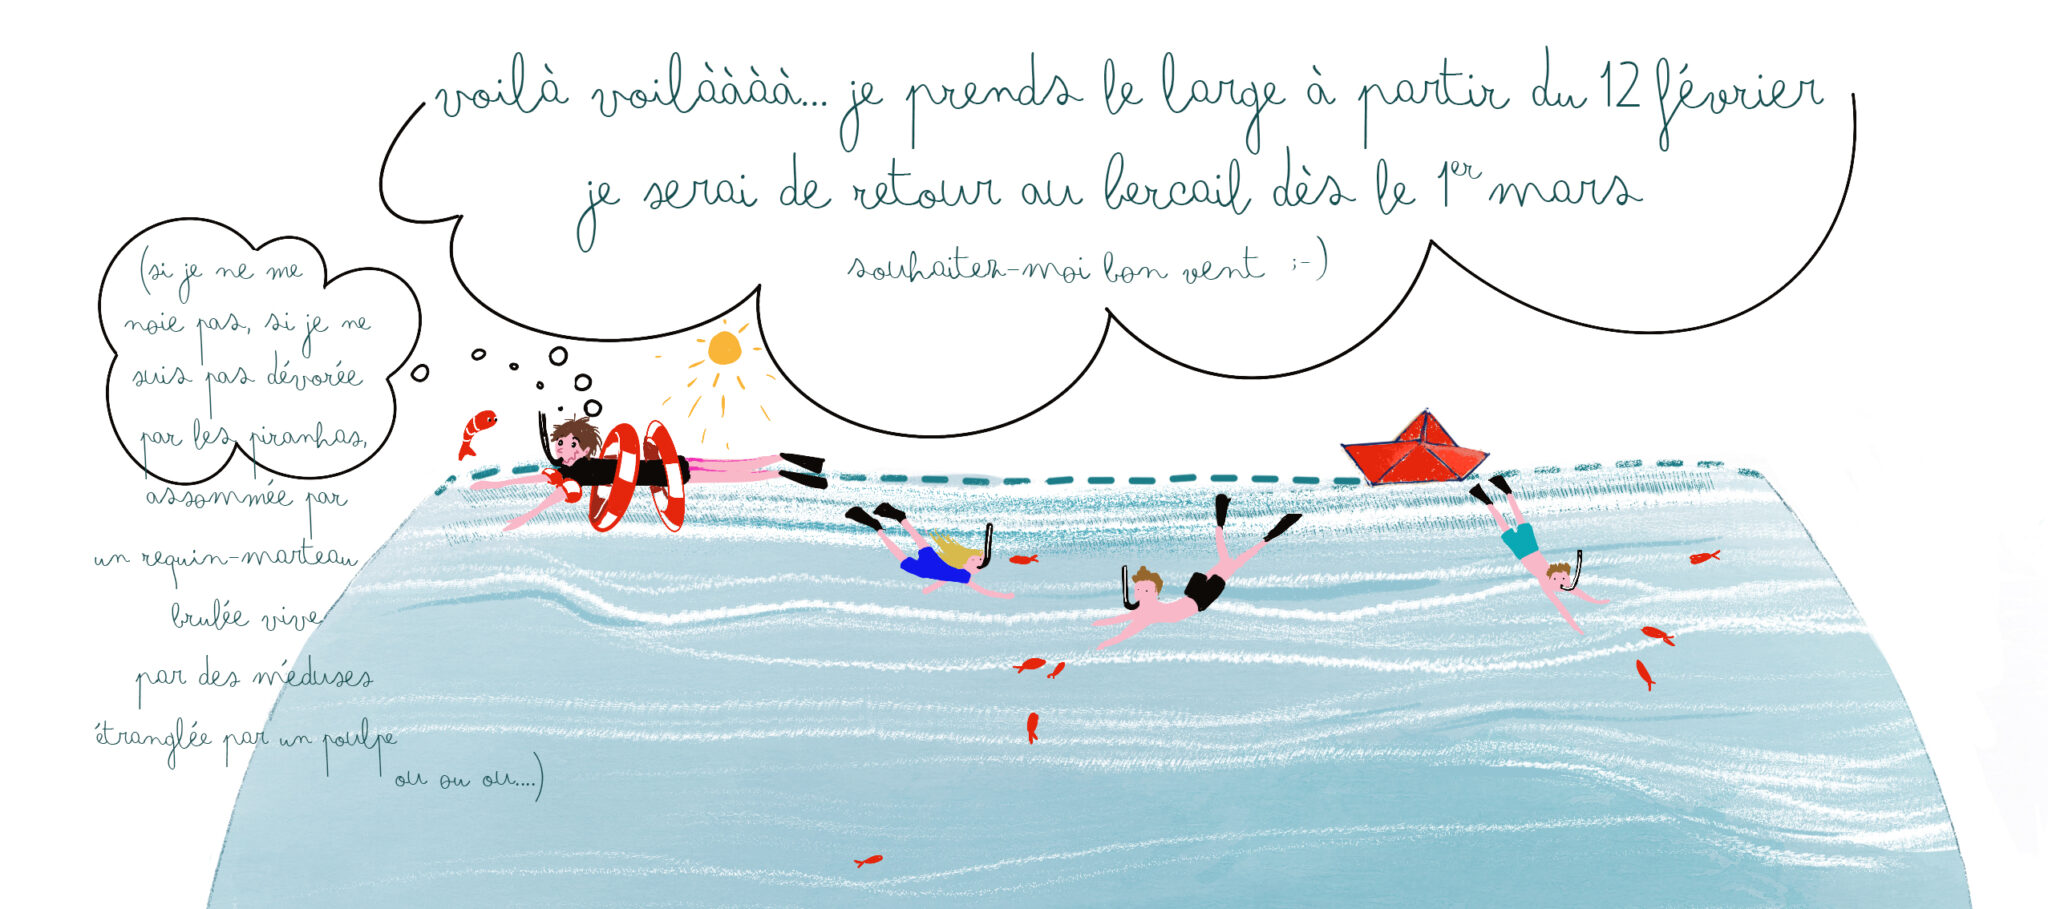 voilà voilàààà... je prends le large à partir du 12 février
je serai de retour au bercail dès le 1er mars
souhaitez-moi bon vent ;-)
(si je ne me
noie pas, si je ne
suis pas dévorée
par les piranhas,
assommée par
un requin-marteau
brulée vive
par des méduses
étranglée par un poulpe
ou ou ou....)